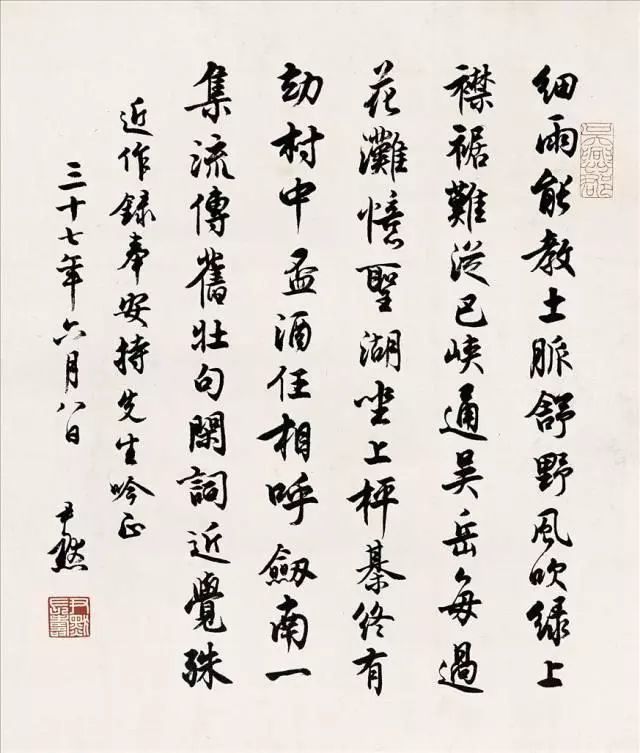 吳興郡
細雨能教土脈舒野風吹緑上
襟裾難從巴峽通吳岳每過
花灘憶聖湖坐上枰棊終有
劫村中盃酒任相呼劔南一
集流傳舊壯句閑詞近覺殊
近作録奉安持先生吟正
三十七年六月八日
尹默
尹默長壽